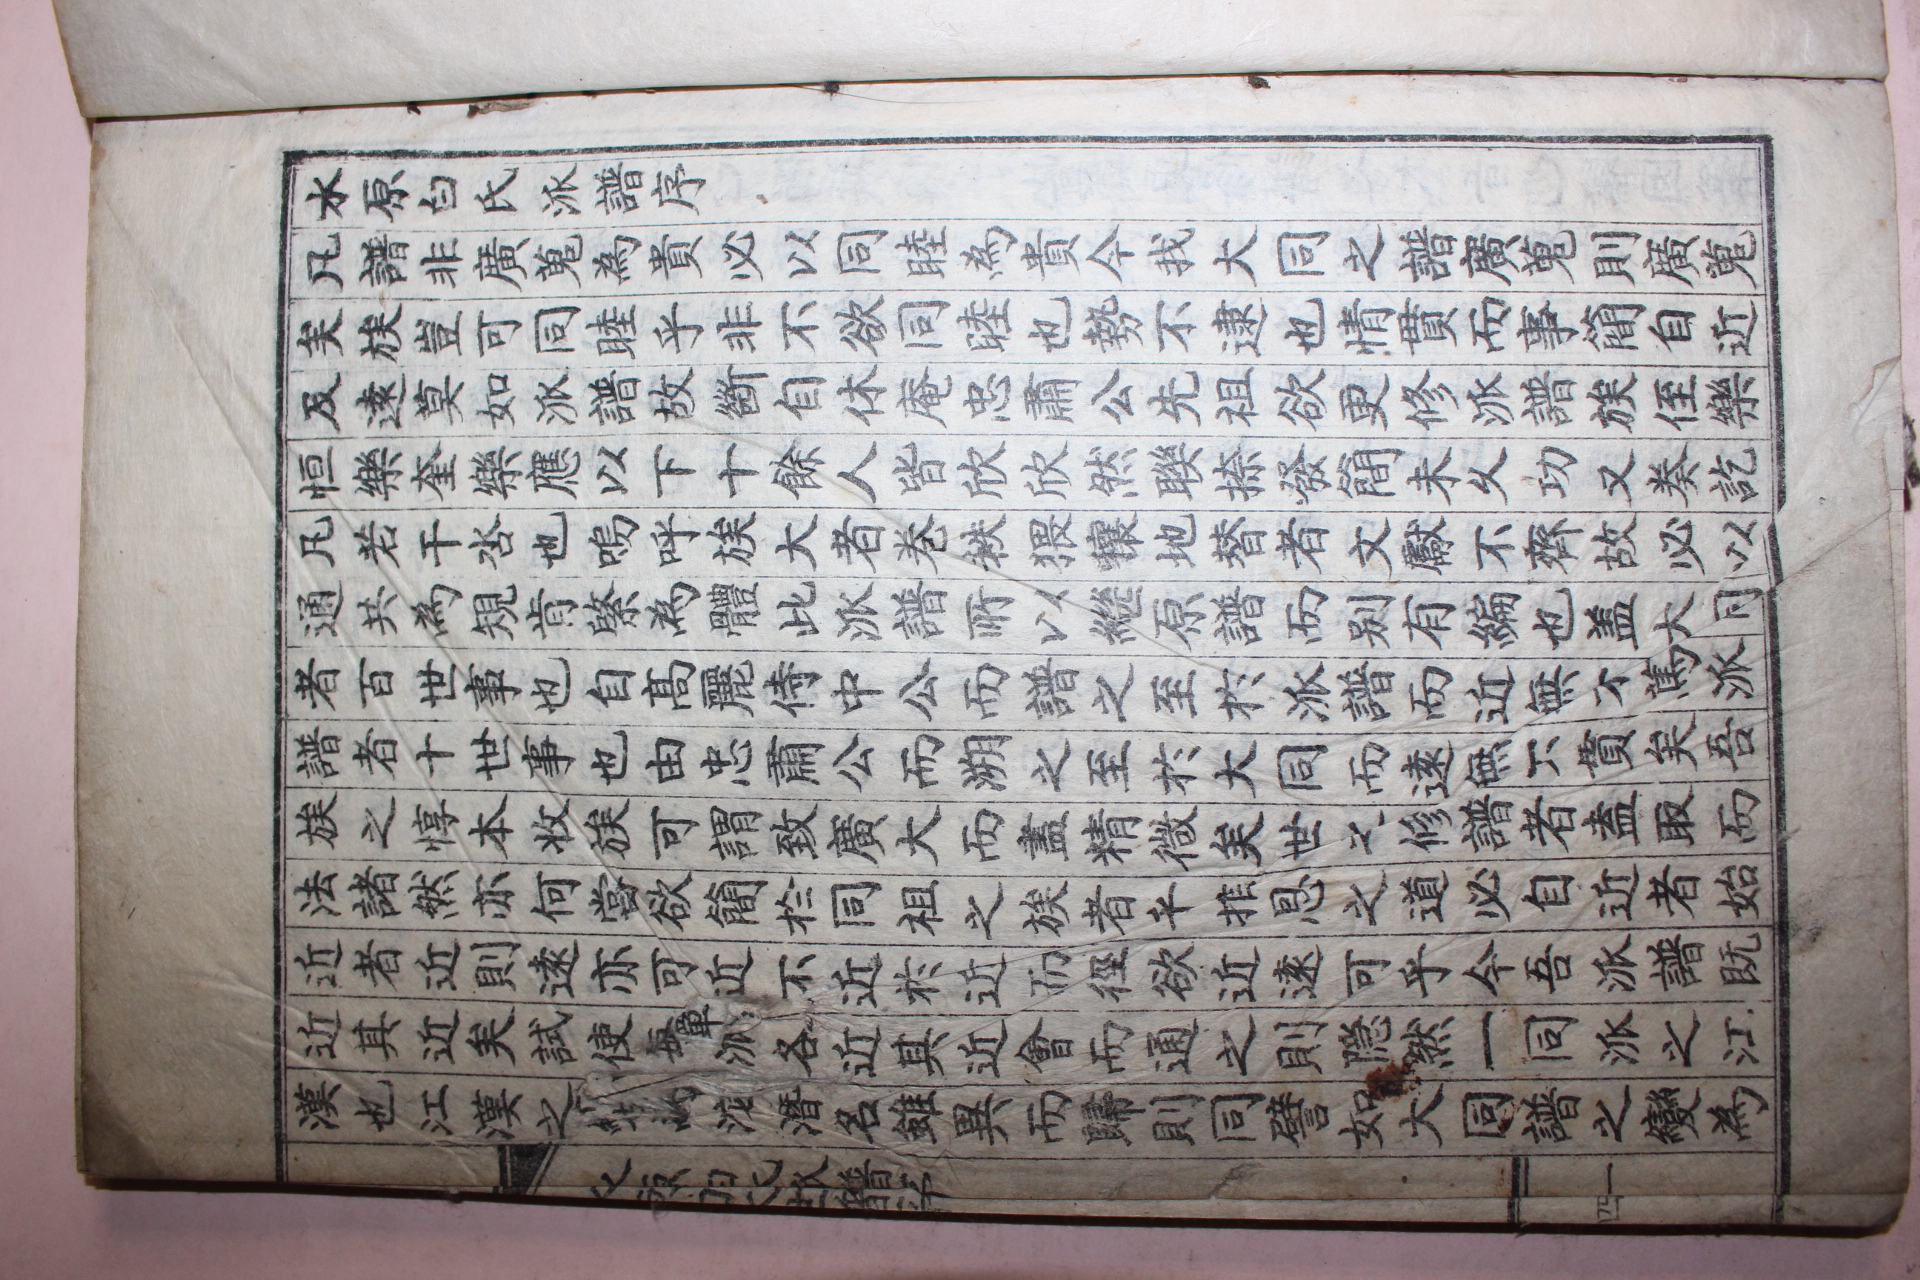 水原白氏派譜序
凡譜非廣蒐為貴必以同睦為貴今我大同之譜廣蒐則廣蒐
矣族豈可同睦乎非不欲同睦也勢不逮也情貫而事簡自近
及遠莫如派譜故斷自休庵忠肅公先祖欲更修派譜族侄樂
恒樂奎樂應以下十餘人皆欣欣然聯捺發簡未久功又葵訖
凡若干沓也嗚呼族大者巻秩猥穰地替者文獻不齊故必以
通共為規肯綮為體此派譜所以繼原譜而别有編也盖大同
者百世事也自髙麗侍中公而譜之至於派譜而近無不篤派
譜者十世事也由忠肅公而溯之至於大同而遠無不貫矣吾
族之惇本收族可謂致廣大而盡精微矣世之修譜者盍取而
法諸然亦何嘗欲簡於同祖之族者乎推恩之道必自近者始
近者近則遠亦可近不近於近而徑欲近遠可乎今吾派譜既
近其近矣試使每單派各近其近會而通之則隠然一同派之江
漢也江漢之為沱潛名雖異而歸則同譬如大同譜之變為
水原白氏派譜序
一